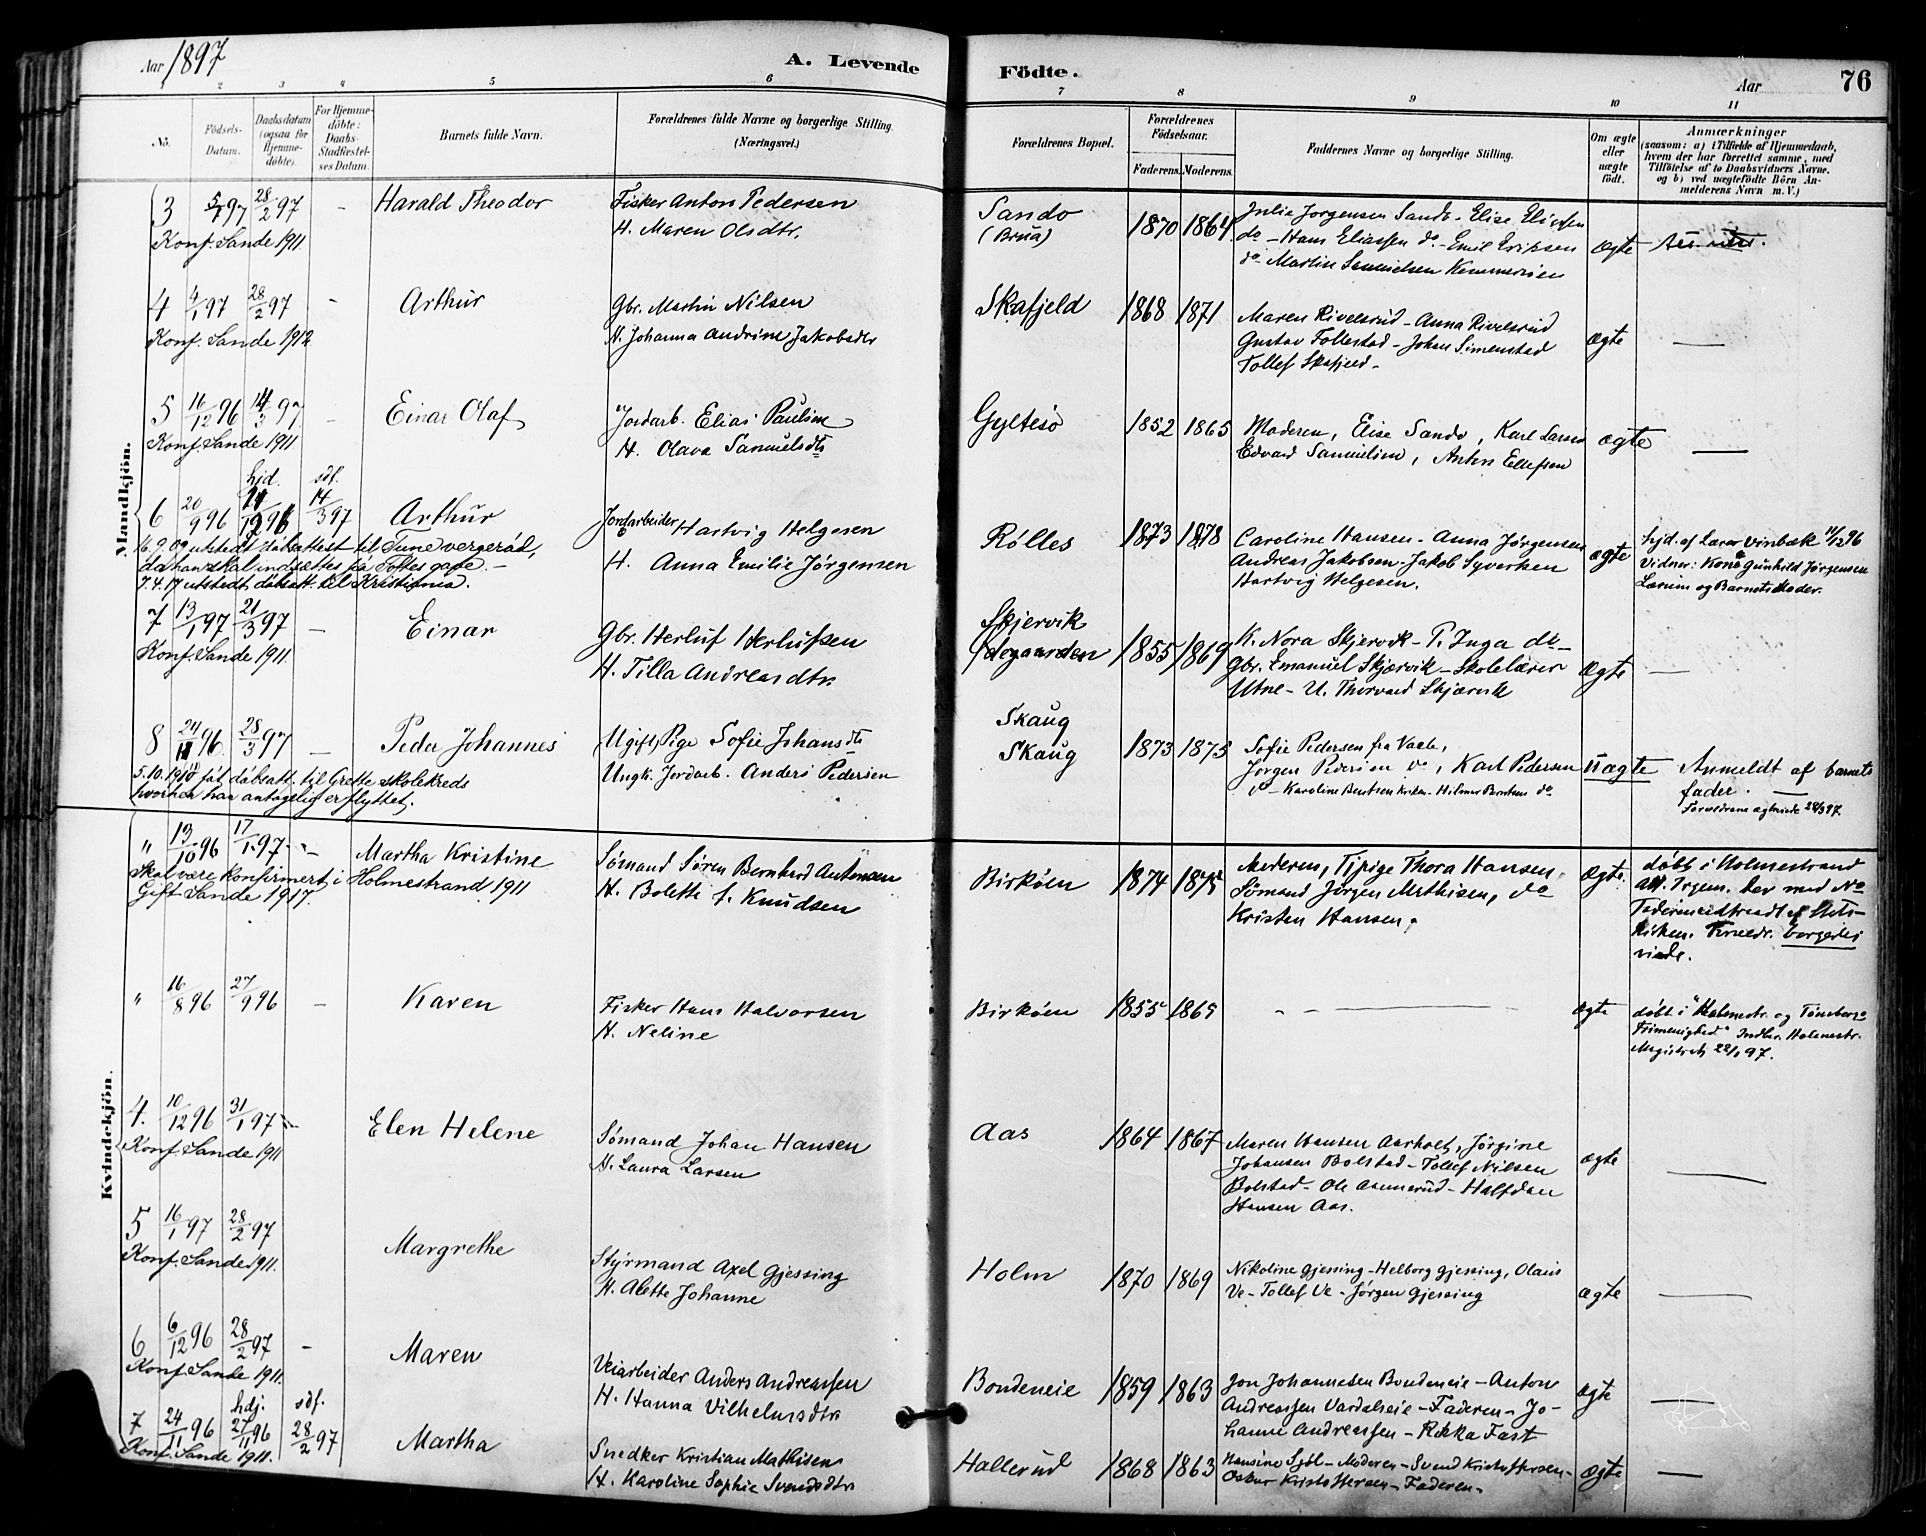 Aar 1897
A. Levende
Födte.
Aar
76
2 3 4 5 6 7 8 9 10 11
No.
Födsels-Datum.
Daabsdatum (ogsaa for Hjemme-döbte).
For Hjemme-döbte: Daabs-Stadfæstel-ses Datum.
Barnets fulde Navn.
Forældrenes fulde Navne og borgerlige Stilling. (Næringsvei.)
Forældrenes Bopæl.
Forældrenes Födselsaar.
Faderens. Moderens.
Faddernes Navne og borgerlige Stilling.
Om ægte eller uægte født.
Anmærkninger
(saasom: a) i Tilfælde af Hjemmedaab, hvem der har forrettet samme, med Tilföielse af to Daabsvidners Navne. og b) ved uægtefödte Börn An-melderens Navn m. V.)
Mandkjön.
3 5/1 97 28/2 97 – Harald Theodor Fisker Anton Pedersen Sando 1870 1864 Julie Jörgensen Sando – Elise Eliassen
Konf. Sande 1911. H. Maren Olsdtr. (Brua) do – Hans Eliassen do – Emil Eriksen ægte
do Martin Samuelsen
4 4/1 97 28/2 97 – Arthur Gbr. Martin Nilsen Skafjeld 1868 1871 Maren Rivelsrud – Anna Rivelsrud
Konf. Sande 1912. H. Johanna Andrine Jakobsdtr Gustav Follestad – Johan Simenstad ægte —
Tollef Skafjeld –
5 16/12 96 14/3 97 – Einar Olaf Jordarb. Elias Paulsen Gyltesö 1852 1865 Moderen, Elise Sando, Karl Larsen ægte —
Konf. Sande 1911 H. Olava Samuelsdtr Edvard Samuelsen, Anton Ellefsen
hjd. sdf.
6 20/9 96 11/12 96 14/3 97 Arthur Jordarbeider Hartvig Helgesen Rölles 1873 1878 Caroline Hansen – Anna Jörgensen ægte hjd. af Lærer Vinbæk 11/12 96
16.9.09 utstedt dåbsattest til Tune vergeråd, H. Anna Emilie Jörgensen Andreas Jakobsen – Jakob Syvertsen Vidner: Kone Gunhild Jörgensen
da han skal indsættes på Toftes gave. – Hartvig Helgesen. Lærum og Barnets Moder.
7.4.17 utstedt dåbsatt. til Kristiania.
7 13/1 97 21/3 97 – Einar Gbr. Herluf Herlufsen Skjervik 1855 1869 K. Nora Skjervik – P. Inga do –
Konf. Sande 1911. H. Tilla Andreasdtr. Gbr. Emanuel Skjærvik – Skolelærer ægte —
Utne – U. Thorvard Skjærvik
8 24/11 96 28/3 97 – Peder Johannes Ugift Pige Sofie Johansdtr Skaug 1873 1873 Sofie Pedersen fra Vaale,
Ungk. Jordarb. Anders Pedersen Skaug Jörgen Pedersen do, Karl Pedersen uægte Anmeldt af barnets
5.10.1910 fåt dåbsatt. til Grette skolekreds do – Karoline Berntsen – Hilmar Berntsen do fader. —
hvorhen han antagelig er flyttet. Forældrene ægteviede 28/3 97.
Kvindekjön.
" 13/10 96 17/1 97 – Martha Kristine Sömand Sören Bernhard Antonsen Birköen 1874 1875 Moderen, Tjpige Thora Hansen, ægte döbt i Holmestrand
Skal være konfirmert i Holmestrand 1911 H. Boletti f. Knudsen Sömand Jörgen Mathisen, do
Gift Sande 1917. Kristen Hansen. Faderen udtraadt af Stats-
kirken. Foreldr. borgerlig
viede.
" 16/8 96 27/9 96 – Karen Fisker Hans Halvorsen Birköen 1855 1865 – – — ægte döbt i "Holmestr. og Tönsbergs
H. Neline Frimenighed" Indber. Holmestr.
Magistrat 22/1 97.
4. 10/12 96 31/1 97 – Elen Helene Sömand Johan Hansen Aas 1864 1867 Maren Hansen Aarholt, Jörgine
Konf. Sande 1911 H. Laura Larsen Johansen Bolstad – Tollef Nilsen ægte —
Bolstad – Ole Aannerud – Halfdan
Hansen Aas.
5 16/1 97 28/2 97 Margrethe Styrmand Axel Gjessing Holm 1870 1869 Nikoline Gjessing – Helborg Gjessing, Olaus
Konf. Sande 1911. H. Alette Johanne Ve – Tollef Ve – Jörgen Gjessing ægte —
6 6/12 96 28/2 97 – Maren Veiarbeider Anders Andreassen Bondeneie 1859 1863 Jon Johannesen Bondeneie – Anton ægte —
Konf. Sande 1911. H. Hanna Vilhelmsdtr Andreassen Vardeheie – Faderen – Jo-
hanne Andreassen – Rikka Fast
hdj. sdf.
7 24/11 96 27/11 96 28/2 97 Martha Snedker Kristian Mathisen Hallerud 1868 1863 Hansine Sjöl – Moderen – Svend Kristoffersen – ægte —
Konf. Sande 1911. H. Karoline Sophie Svendsdtr Oskar Kristoffersen – Faderen –